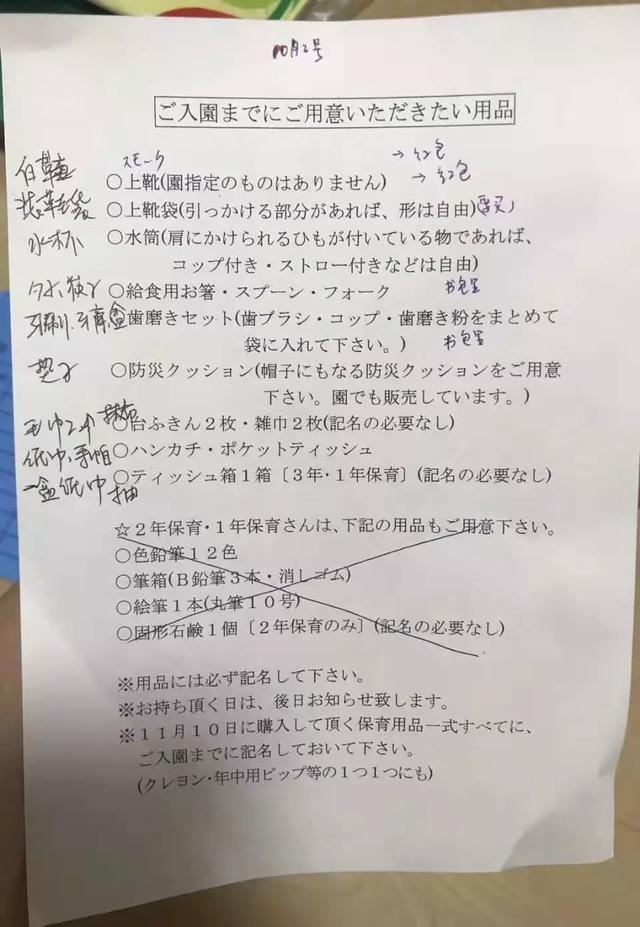 10月2号
ご入園までにご用意いただきたい用品
スモーク
→ 红包
白鞋
○上靴(園指定のものはありません)
→ 红包
装鞋袋
○上靴袋(引っかける部分があれば、形は自由)
水杯
○水筒(肩にかけられるひもが付いている物であれば、
コップ付き・ストロー付きなどは自由)
○給食用お箸・スプーン・フォーク
书包里
牙刷.牙膏盒
○歯磨きセット(歯ブラシ・コップ・歯磨き粉をまとめて
袋に入れて下さい。)
书包里
垫子
○防災クッション(帽子にもなる防災クッションをご用意
下さい。園でも販売しています。)
毛巾2个
○台ふきん2枚・雑巾2枚(記名の必要なし)
纸巾.手帕
○ハンカチ・ポケットティッシュ
一盒纸巾抽
○ティッシュ箱1箱〔3年・1年保育〕(記名の必要なし)
☆2年保育・1年保育さんは、下記の用品もご用意下さい。
○色鉛筆12色
○筆箱(B鉛筆3本・消しゴム)
○絵筆1本(丸筆10号)
○固形石鹸1個〔2年保育のみ〕(記名の必要なし)
※用品には必ず記名して下さい。
※お持ち頂く日は、後日お知らせ致します。
※11月10日に購入して頂く保育用品一式すべてに、
ご入園までに記名しておいて下さい。
(クレヨン・年中用ピップ等の1つ1つにも)